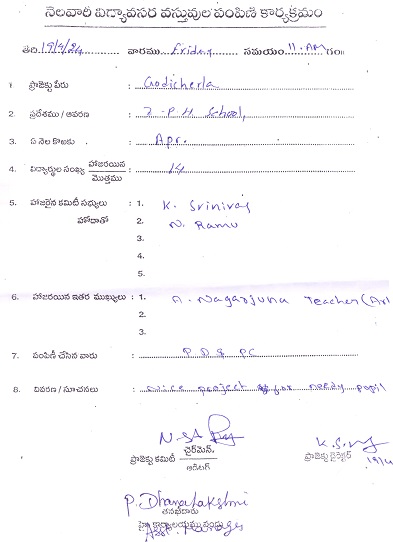 నెలవారీ విద్యావసర వస్తువుల పంపిణి కార్యక్రమం
తెది 19/4/24 వారము Friday సమయం 11. AM గం॥
1 ప్రాజెక్టు పేరు : Godicherla
2. ప్రదేశము / ఆవరణ : Z-P.H School,
3. ఏ నెల కొఱకు : Apr.
4. విద్యార్థుల సంఖ్య హాజరయిన / మొత్తము : 14
5. హాజరైన కమిటీ సభ్యులు : 1. K. Srinivas
హోదాతో 2. N. Ramu
3.
4.
5.
6. హాజరయిన ఇతర ముఖ్యులు : 1. A. Nagarjuna Teacher (Art
2.
3.
7. పంపిణీ చేసిన వారు : P D & PC
8. వివరణ / సూచనలు : Nice project for needy pupil
చైర్‌మెన్.
ప్రాజెక్టు కమిటీ
ఆడిటర్
ప్రాజెక్టు డైరెక్టర్
19/4
P. Dhanalakshmi